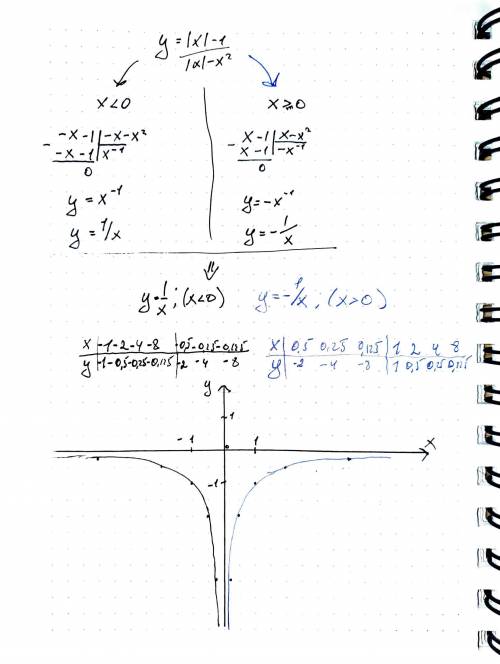 y = |x| - 1 / |x| - x²
x < 0
x ≥ 0
- -x - 1 | -x - x²
-x - 1 | x⁻¹
0
y = x⁻¹
y = 1/x
- x - 1 | x - x²
x - 1 | -x⁻¹
0
y = -x⁻¹
y = - 1/x
⇓
y = 1/x ; (x < 0)
y = -1/x ; (x > 0)
x | -1 -2 -4 -8 | -0,5 -0,25 -0,125
y | -1 -0,5 -0,25 -0,125 | -2 -4 -8
x | 0,5 0,25 0,125 | 1 2 4 8
y | -2 -4 -8 | 1 0,5 0,25 0,125
y
1
-1
1
x
-1